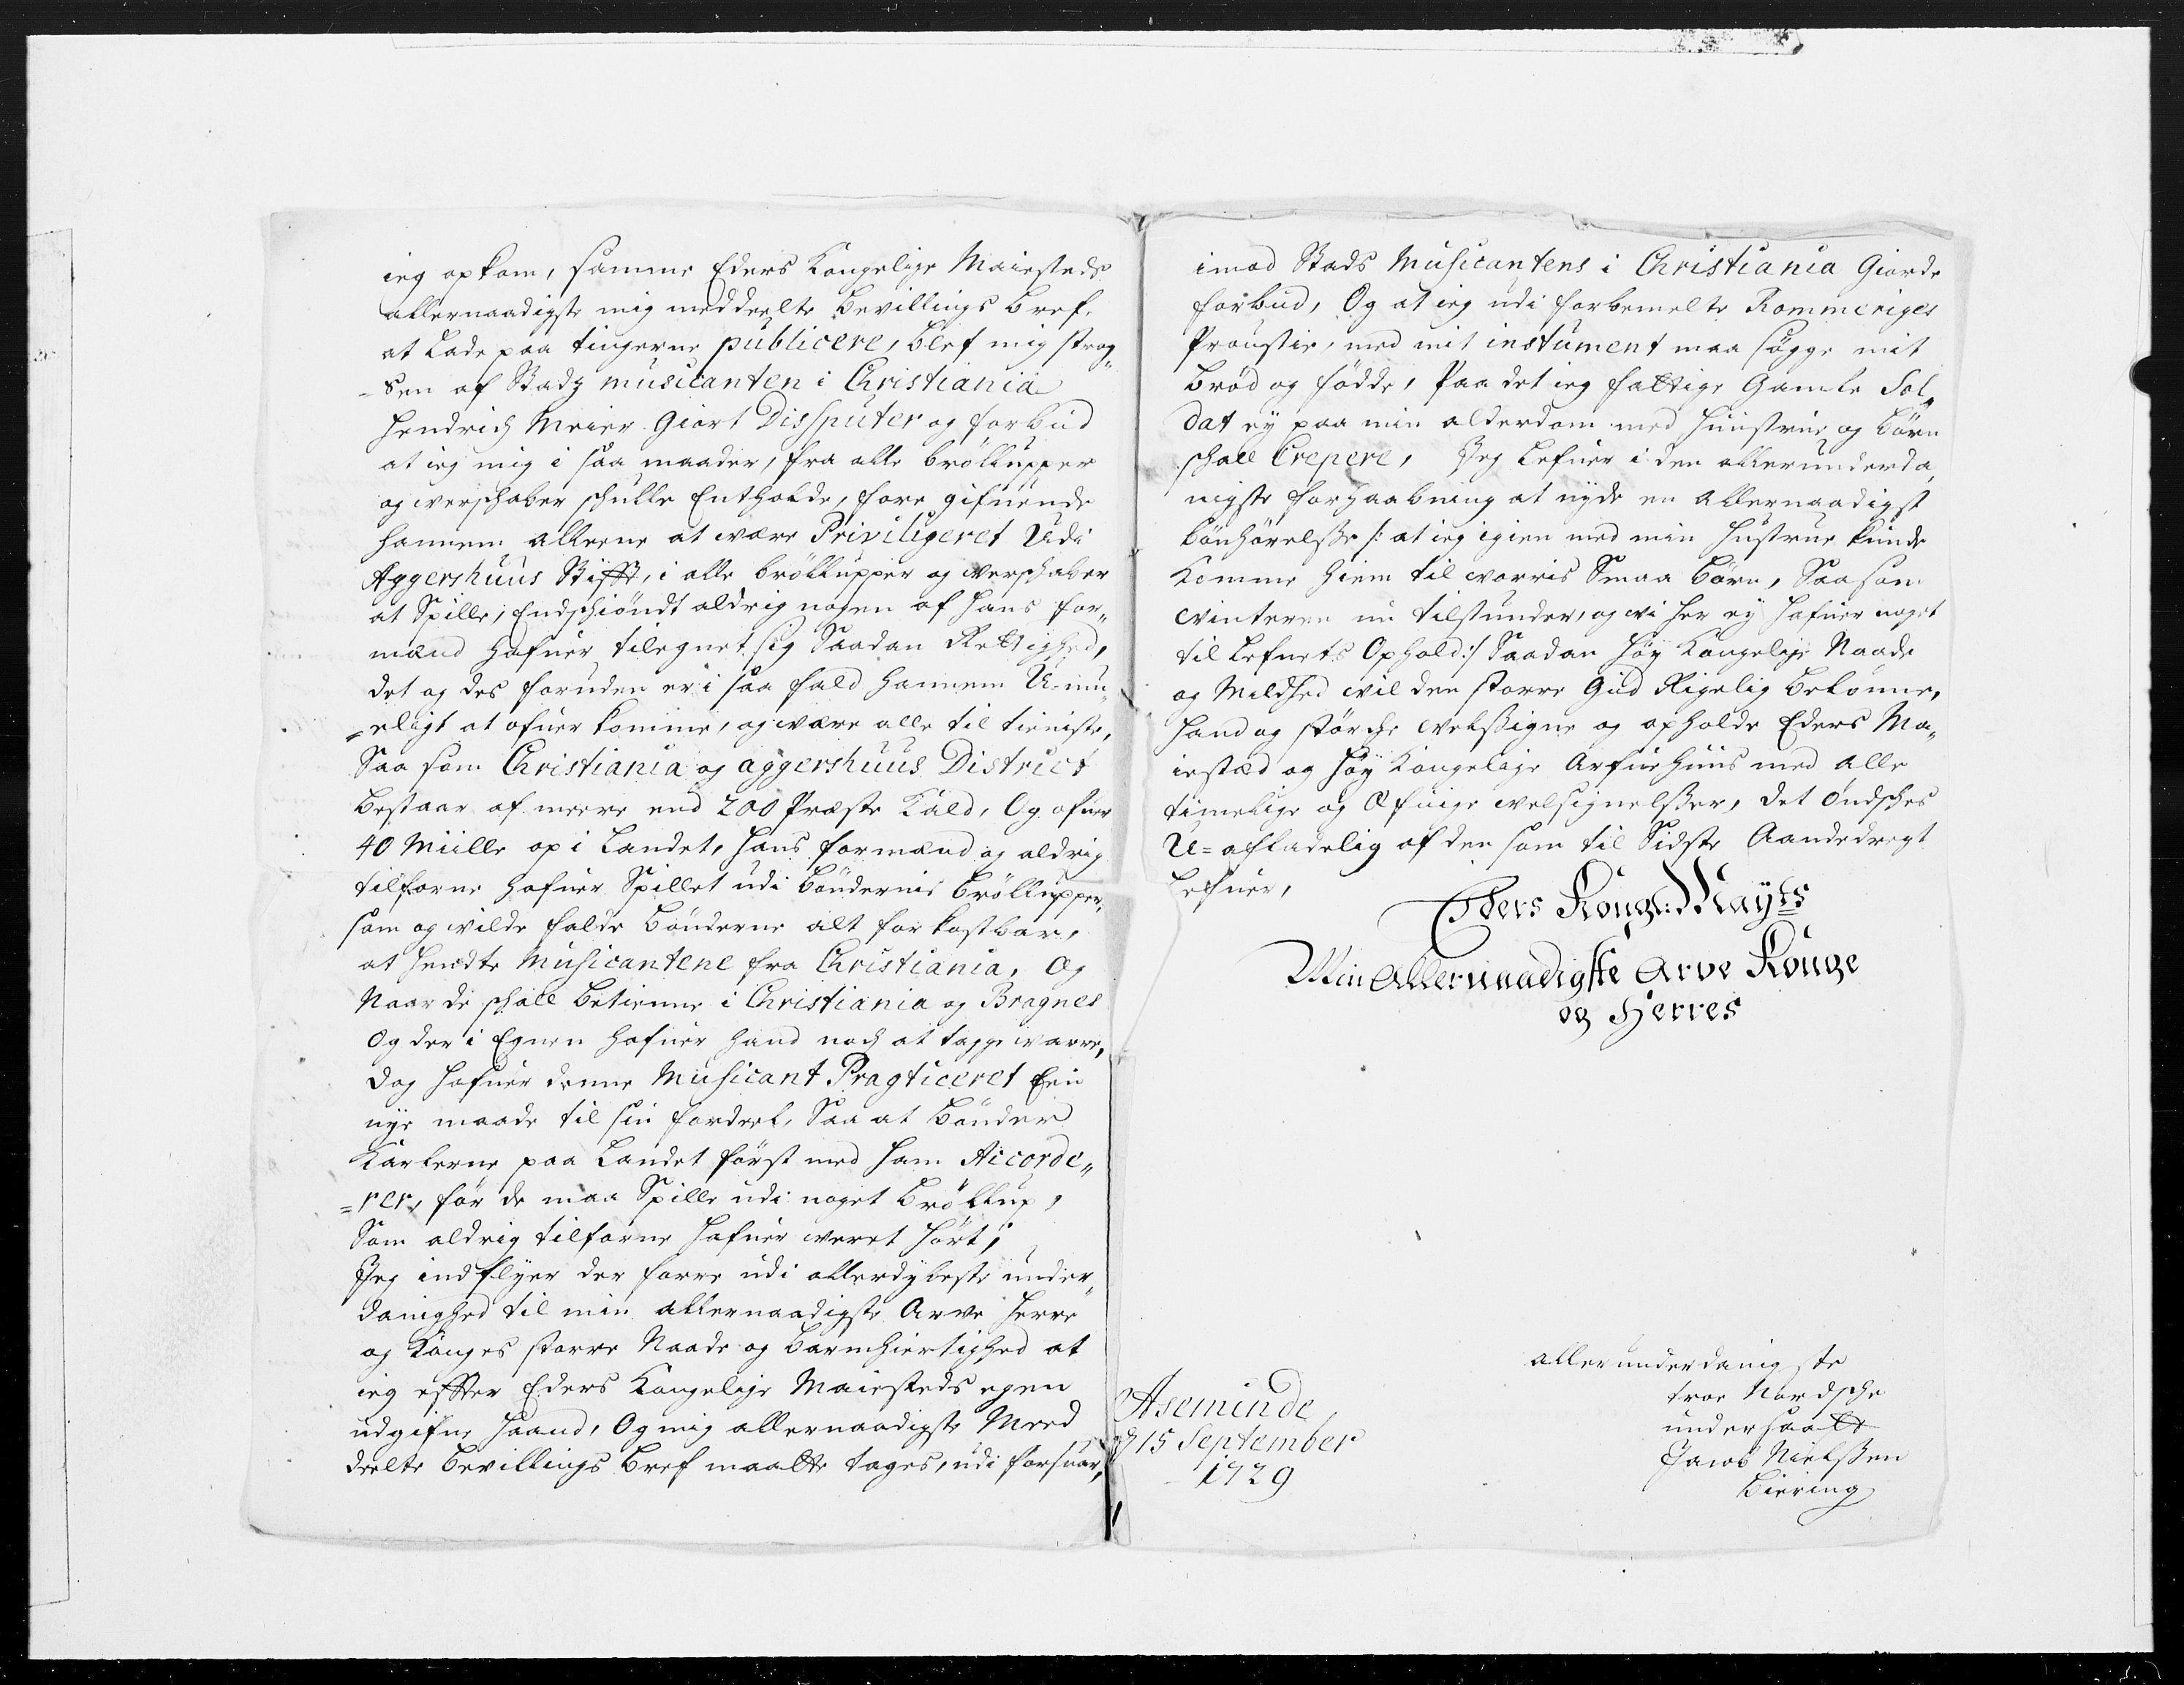 ieg opkom, samme Eders Kongelige Maiesteds
allernaadigste mig meddeelte bevillings bref,
at lade paa tingerne publicere, blef mig strax
=Sen af Stadz musicanten i Christiania
Hendrich Meier giort Dissputer og forbud
at ieg mig i saa maader, fra alle bröllupper
og werschaber schulle Entholde, fore gifuende
hannem alleene at være Priviligeret Udi
Aggershuus Stifft, i alle bröllupper og werschaber
at Spille, Endschiöndt aldrig nogen af hans for„
mænd hafuer tilegnet sig Saadan Rettighed,
det og des foruden er i saa fald hannem U-mu„
=eligt at ofuer komme, og være alle til tieniste,
Saa som Christiania og aggershuus District
bestaar af meere end 200 Præste Kald, Og ofuer
40 Miille op i Landet, hans formænd og aldrig
tilforne hafuer Spillet udi böndernis Bröllupper,
som og vilde falde bönderne alt for kostbar,
at hendte Musicantene fra Christiania, Og
Naar de schall betienne i Christiania og Bragnes
Og der i Egnen hafuer hand noch at tagge ware,
dog hafuer denne Musicant Pragticeret Een
nye maade til sin fordeel, Saa at bönder
Karlerne paa Landet först med ham Accorde„
=rer, för de maa Spille udi noget Bröllup,
Som aldrig tilforne hafuer weret hört;
Jeg indflyer der forre udi allerdybeste under„
danighed til min allernaadigste Arve Herre
og Konges storre Naade og barmhiertighed at
ieg effter Eders Kongelige Maiesteds egen
udgifne haand, Og mig allernaadigste Meed
deelte bevillings bref maatte tages, udi forsuar,
imod Stads Musicantens i Christiania Giorde
forbud, Og at ieg udi forbemelte Rommeriges
Proustie, med mit instument maa sögge mit
bröd og födde, Paa det ieg fattige Gamle Sol„
dat ey paa min alderdom med huustrue og börn
schall Crepere, Jeg lefuer i den allerunderda„
nigste forhaabning at nyde en allernaadigst
bönhörelsse /: at ieg igien med min hustrue kunde
komme hiem til worris Smaa börn, Saa som
winteren nu tilstunder, og wi her ey hafuer noget
til lefnets Ophold :/ Saadan höy Kongelig Naade
og Mildhed wil den storre Gud Rigelig belönne,
hand og störche welssigne og opholde Eders Ma„
iestæd og höy Kongelige Arfue huus med alle
timelige og Æfuige welsignelsser, det öndsches
U=afladelig af den som til Sidste Aandedregt
lefuer,
Eders Kongl: Mayts
Min Allernaadigste Arve Konge
og Herres
Aseminde
d 15 September
1729
allerunderdanigste
troe Nordsche
undersaatt
Jacob Nielssen
Biering